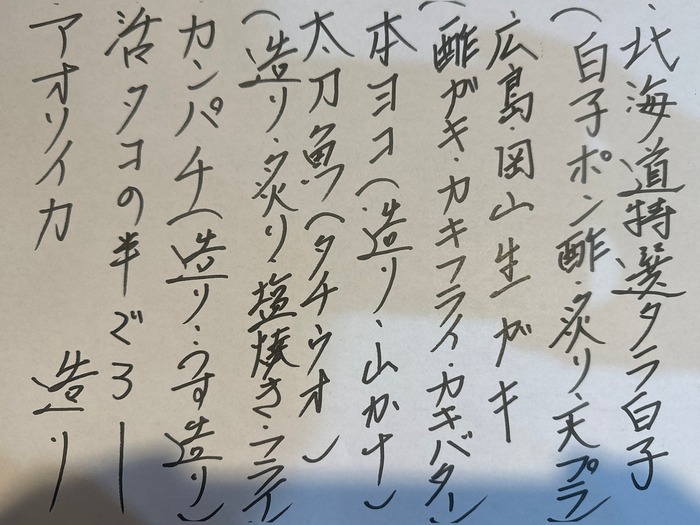 北海道特選タラ白子
(白子ポン酢・炙り・天プラ)
広島・岡山生ガキ
(酢ガキ・カキフライ・カキバター)
本ヨコ(造り・山かけ)
太刀魚(タチウオ)
(造り・炙り・塩焼き・フライ
カンパチ(造り・うす造り)
活タコの半ごろー
アオリイカ 造り